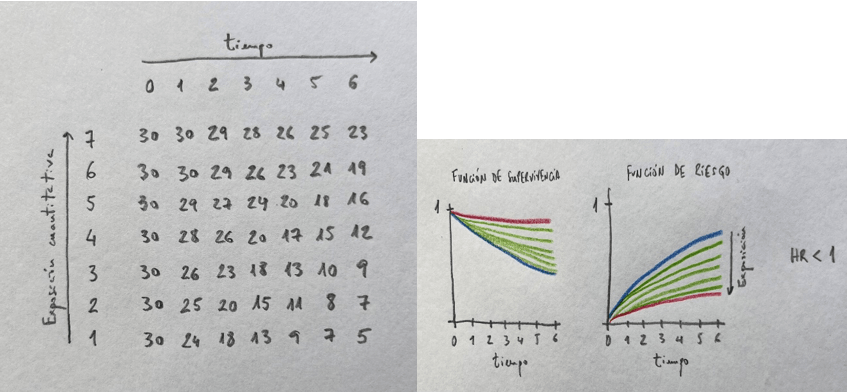 tiempo
0 1 2 3 4 5 6
Exposición cuantitativa
7 30 30 29 28 26 25 23
6 30 30 29 26 23 21 19
5 30 29 27 24 20 18 16
4 30 28 26 20 17 15 12
3 30 26 23 18 13 10 9
2 30 25 20 15 11 8 7
1 30 24 18 13 9 7 5
FUNCIÓN DE SUPERVIVENCIA
1
0 1 2 3 4 5 6
tiempo
FUNCIÓN DE RIESGO
1
Exposición
0 1 2 3 4 5 6
tiempo
HR < 1